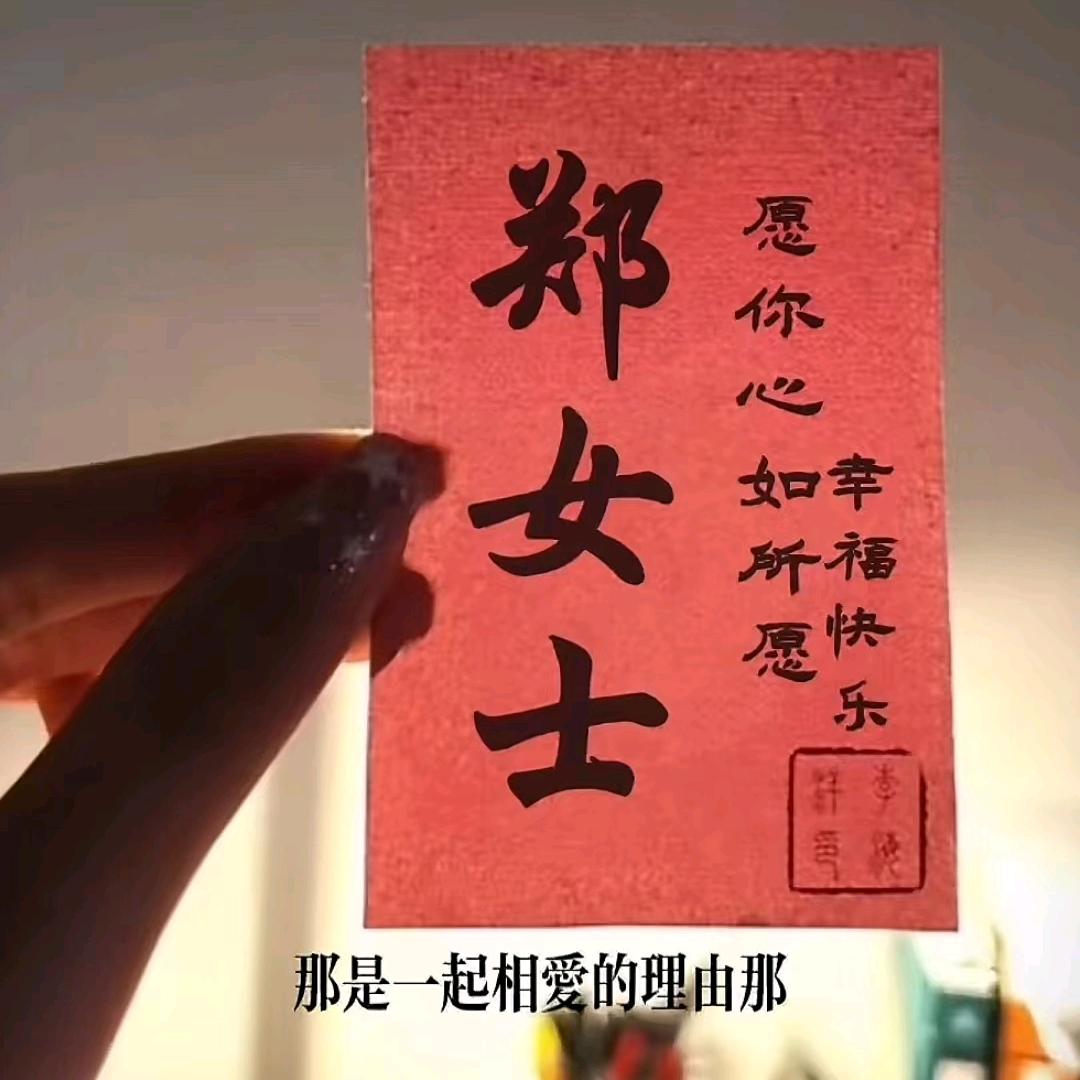 郑女士
愿你心如所愿
幸福快乐
那是一起相愛的理由那